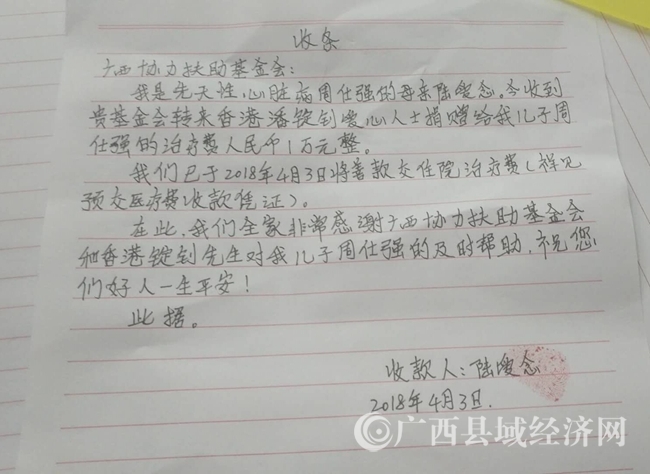 收条
广西协力扶助基金会:
我是先天性心脏病周仕强的母亲陆嫒念。今收到
贵基金会转来香港潘锭钊爱心人士捐赠给我儿子周
仕强的治疗费人民币1万元整。
我们已于2018年4月3日将善款交住院治疗费(祥见
预交医疗费收款凭证)。
在此,我们全家非常感谢广西协力扶助基金会
和香港锭钊先生对我儿子周仕强的及时帮助,祝您
们好人一生平安!
此据。
收款人:陆嫒念
2018年4月3日.
广西县域经济网